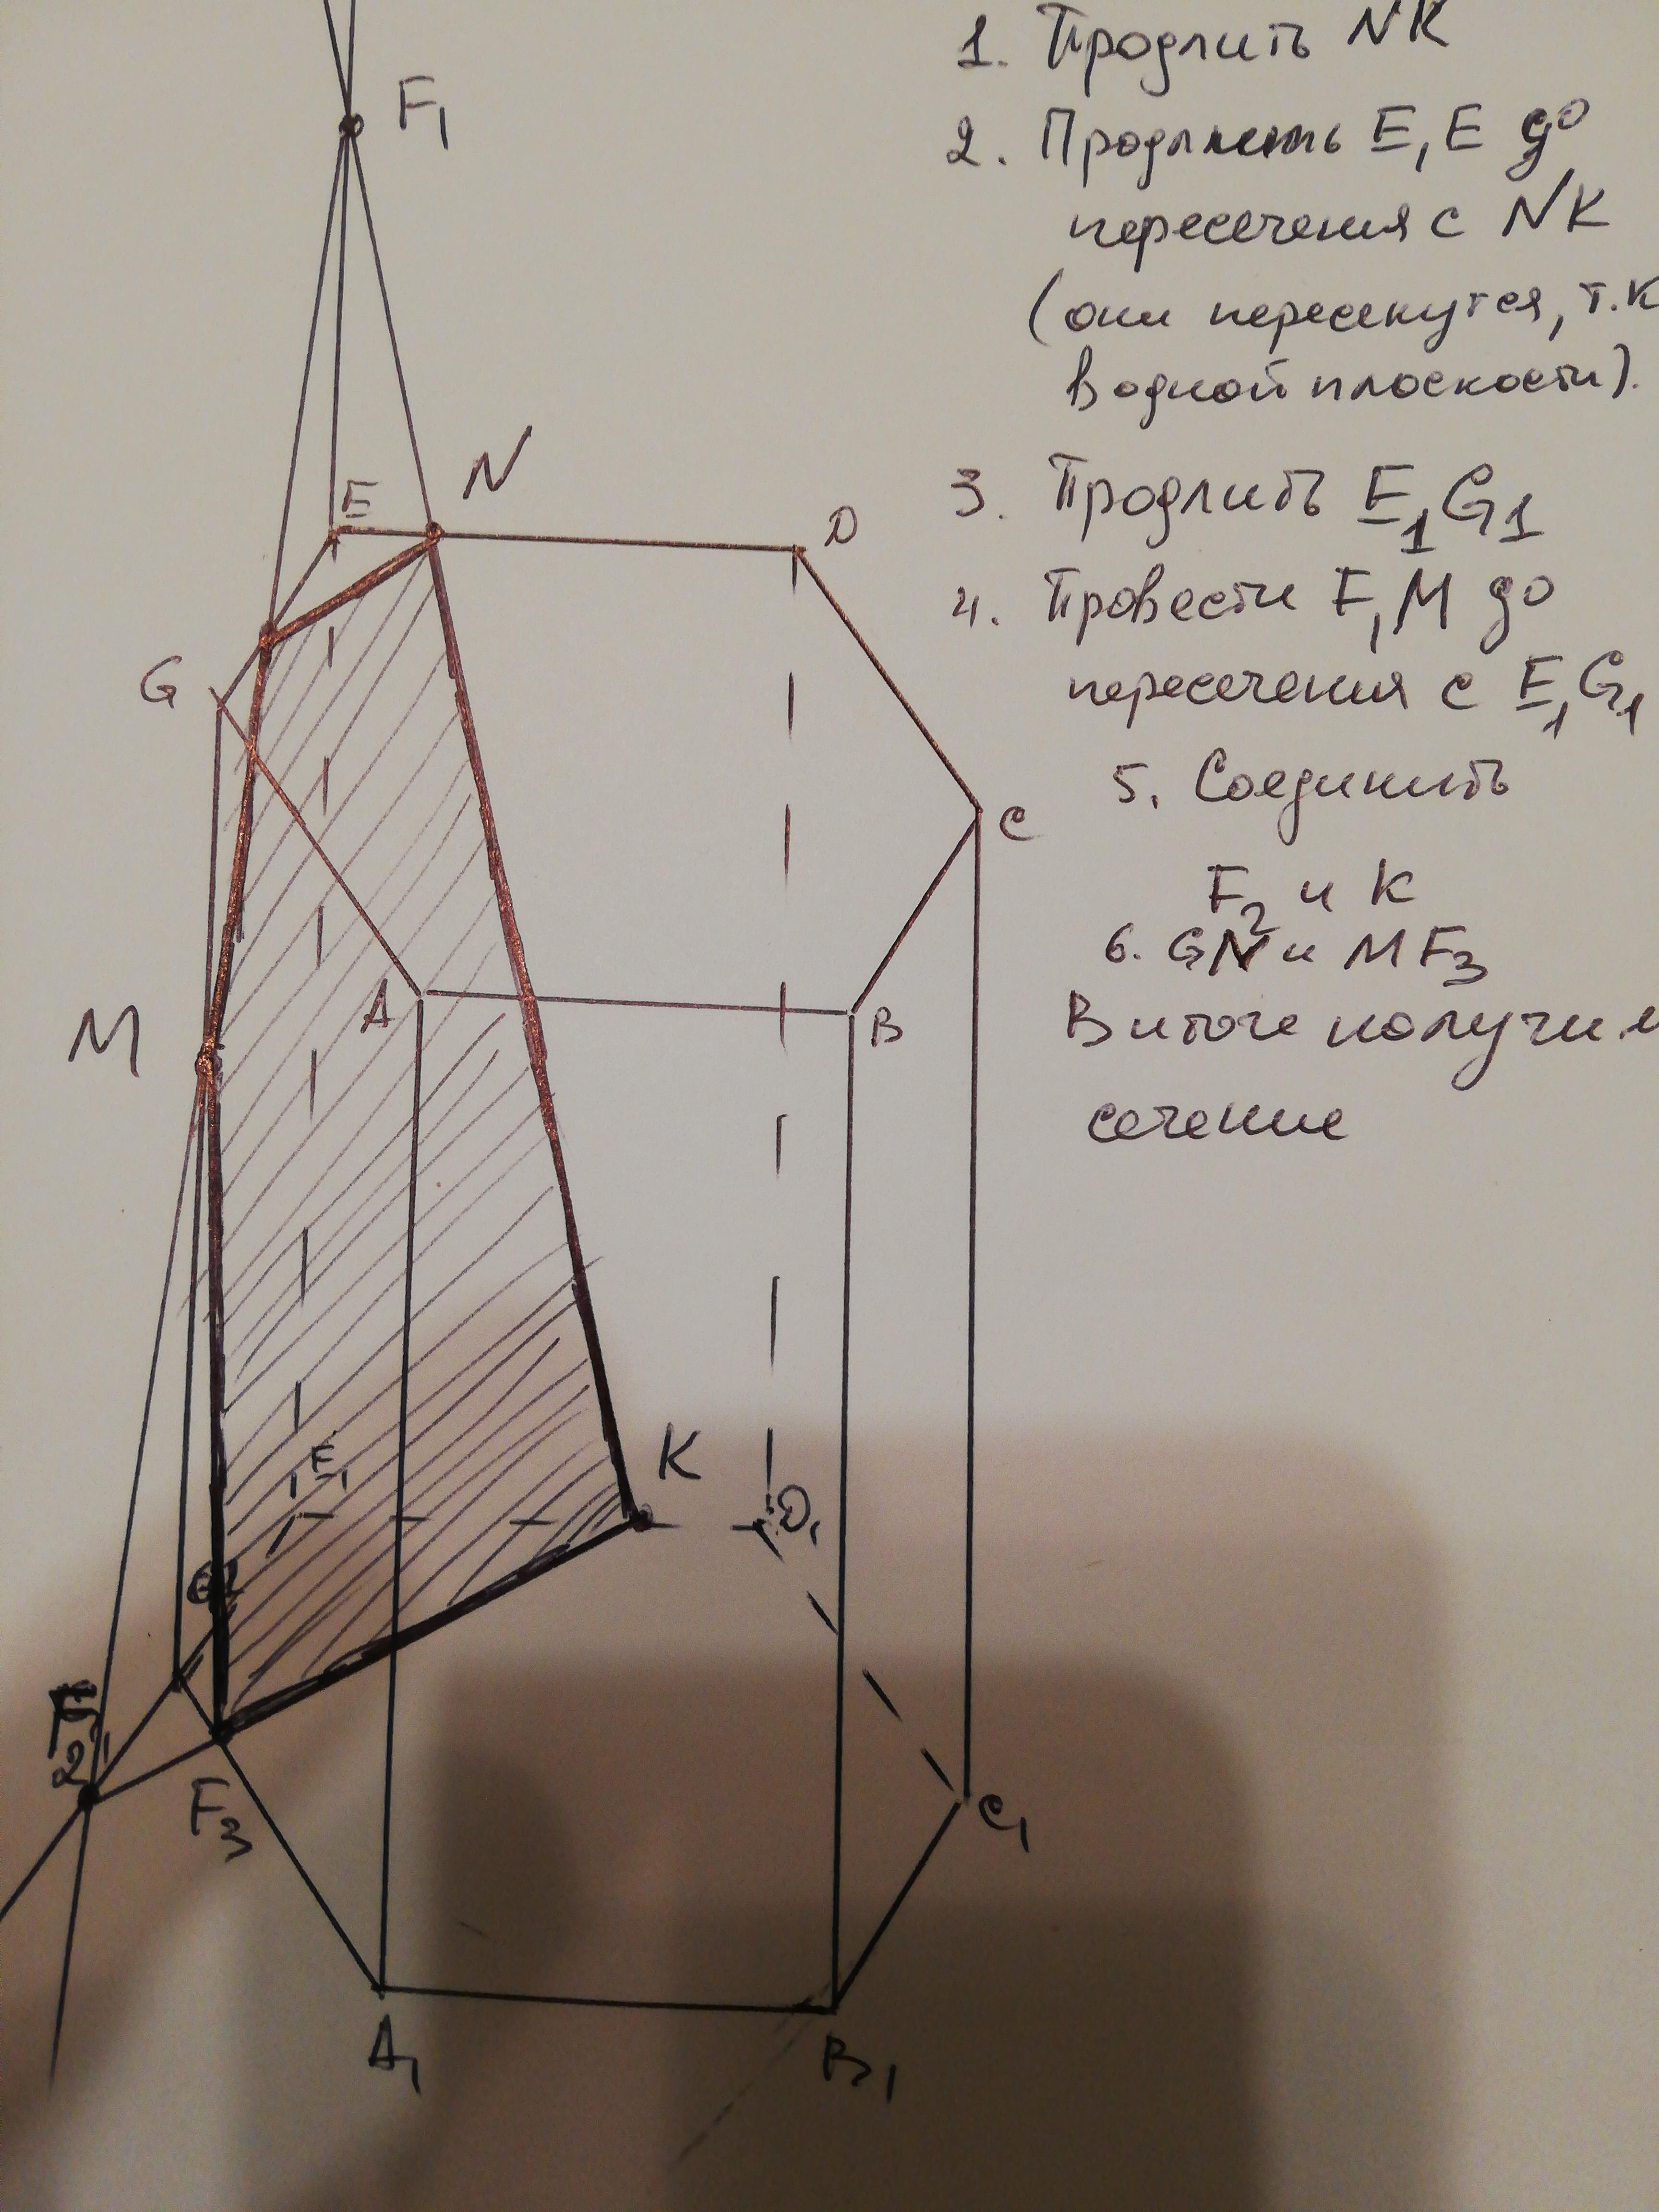 1. Продлить NK
F₁
2. Продлить E₁E до
пересечения с NK
(они пересекутся, т.к
в одной плоскости).
N
E
D
3. Продлить E₁G₁
4. Провести F₁M до
пересечения с E₁G₁
G
5. Соединить
C
F₂ и K
6. GN и MF₃
A
B
M
В итоге получим
сечение
K
E₁
D₁
G₁
F₂
F₃
C₁
A₁
B₁